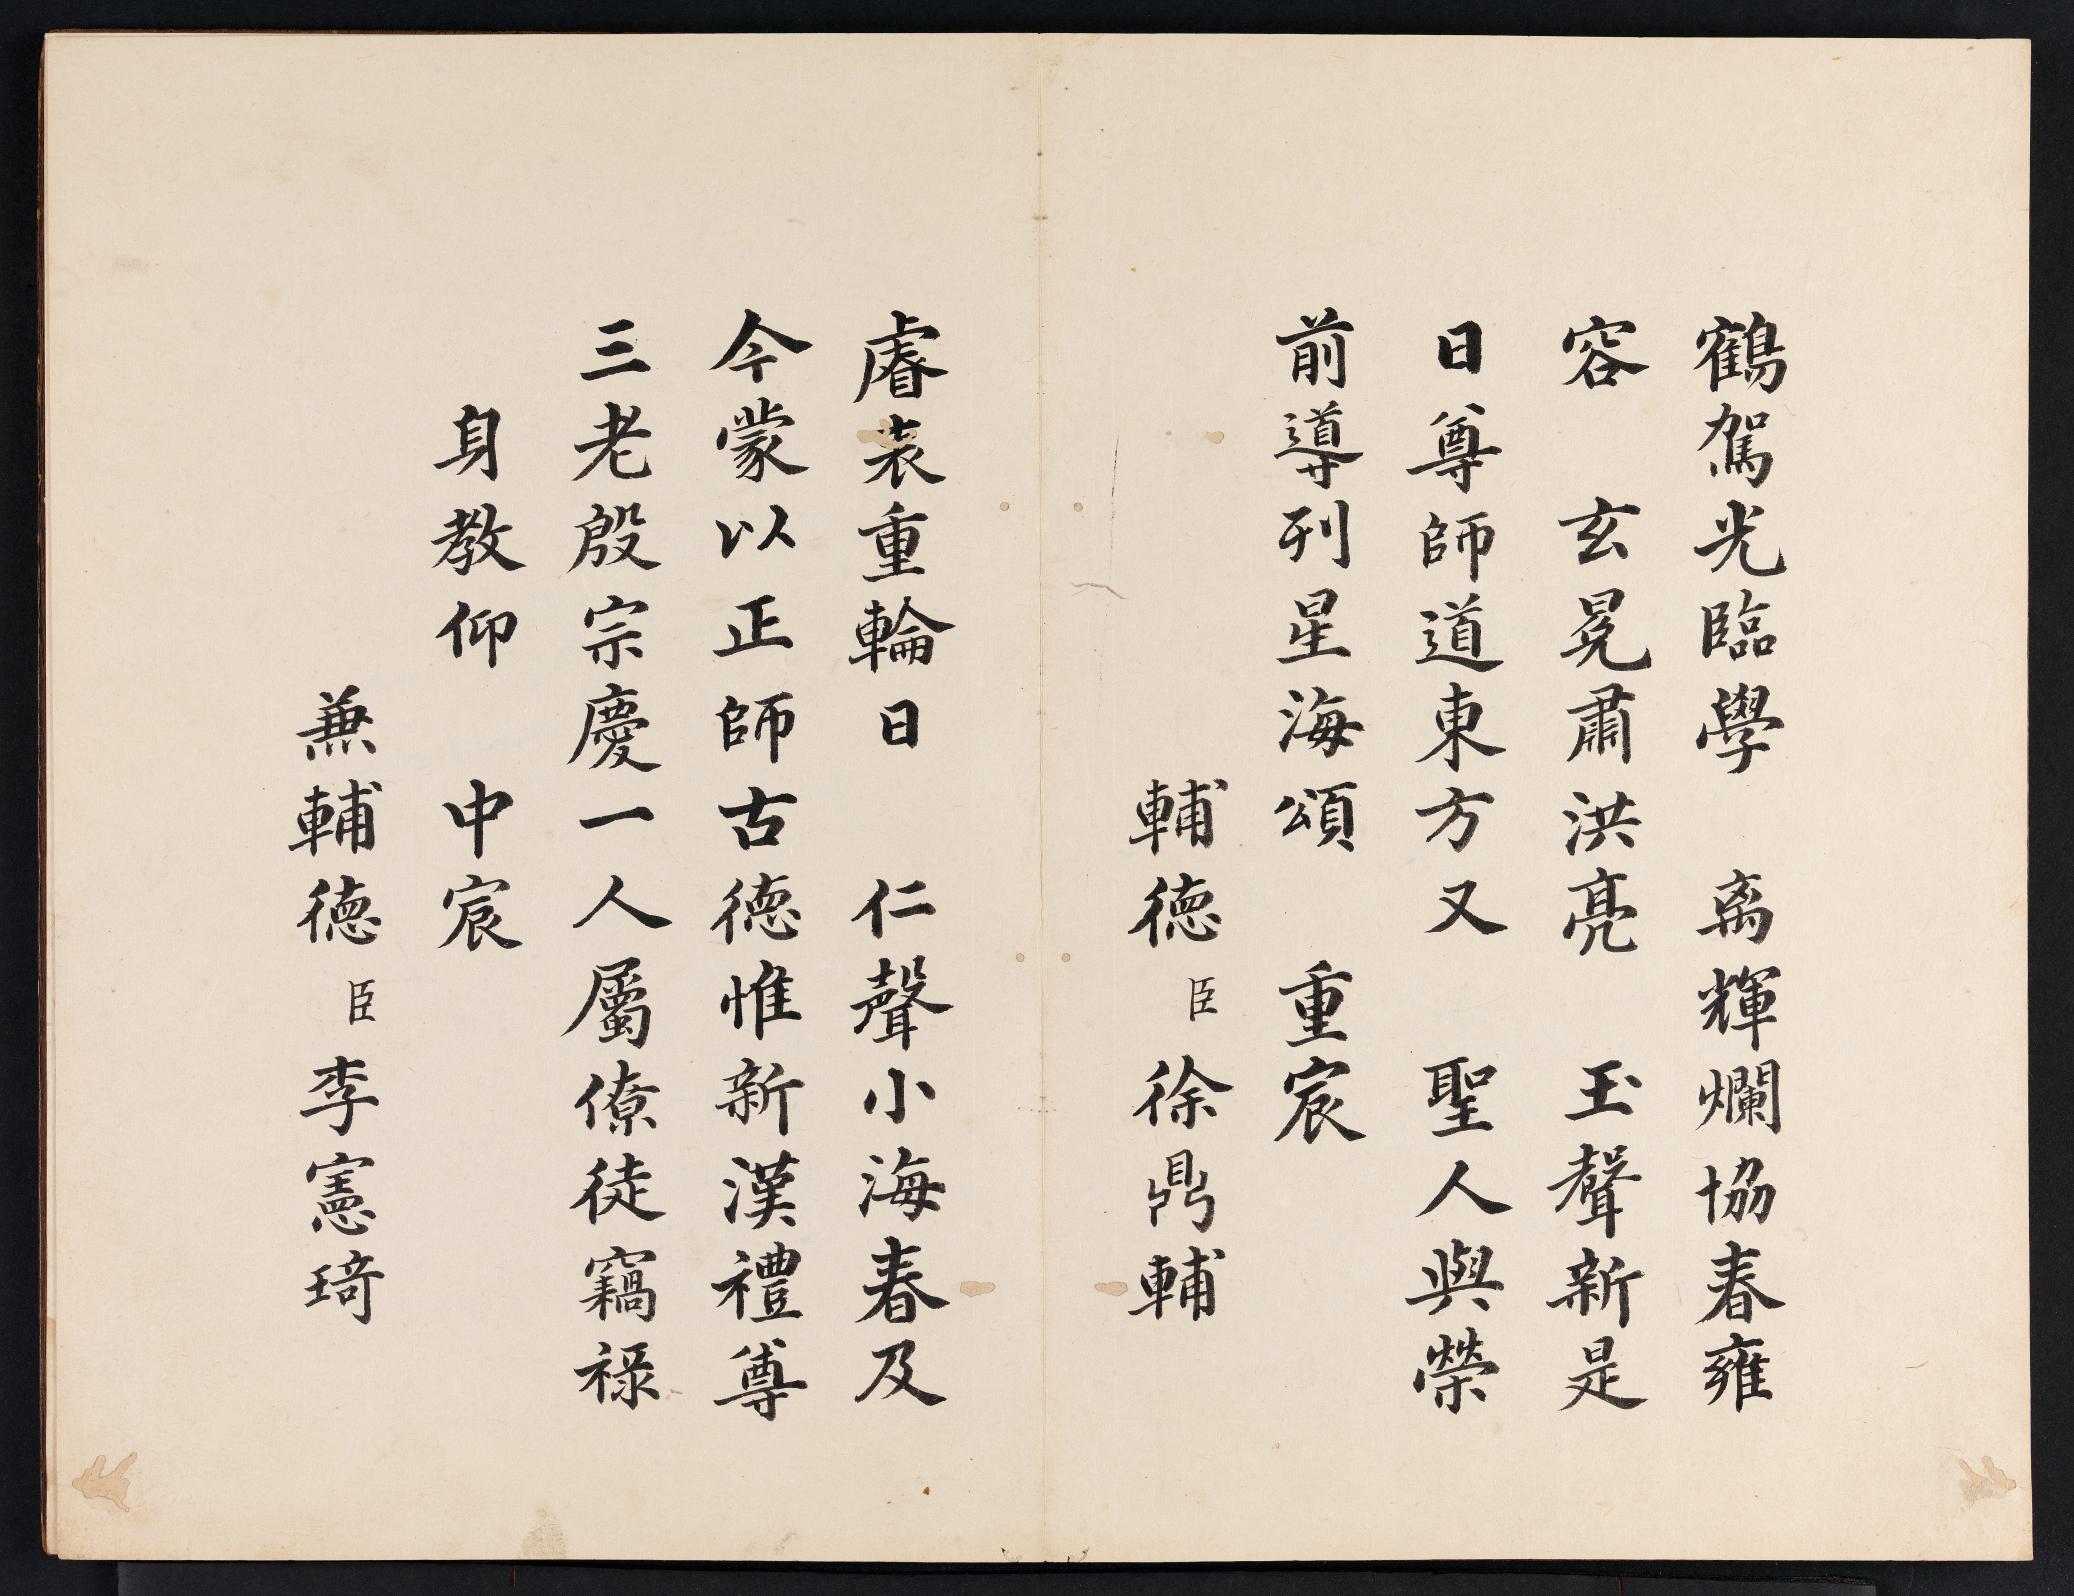 鶴駕光臨學　离輝爛協春雍
容　玄冕肅洪亮　玉聲新是
日尊師道東方又　聖人與榮
前導刊星海頌　重宸
輔德臣徐鼎輔
睿裝重輪日　仁聲小海春及
今蒙以正師古德惟新漢禮尊
三老殷宗慶一人屬僚徒竊祿
身教仰　中宸
兼輔德臣李憲琦